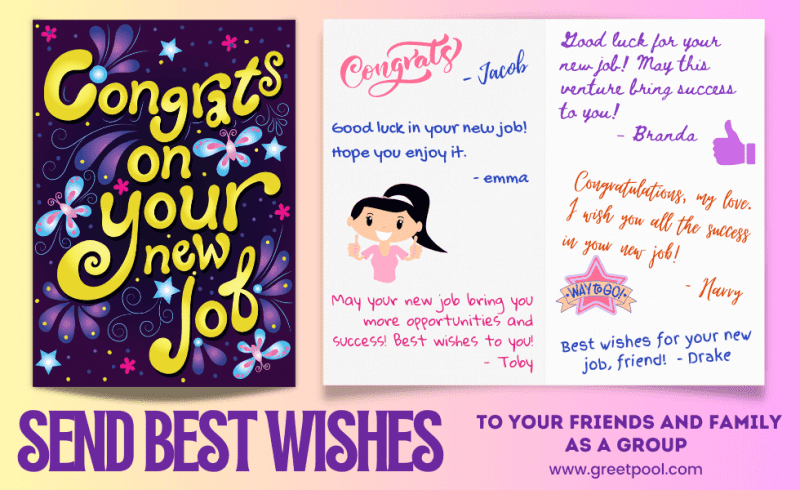 Congrats
on
your
new
job
Congrats - Jacob
Good luck in your new job!
Hope you enjoy it.
- emma
May your new job bring you
more opportunities and
success! Best wishes to you!
- Toby
Good luck for your
new job! May this
venture bring success
to you!
- Branda
Congratulations, my love.
I wish you all the success
in your new job!
- Navvy
WAY to GO!
Best wishes for your new
job, friend! - Drake
SEND BEST WISHES
TO YOUR FRIENDS AND FAMILY
AS A GROUP
www.greetpool.com